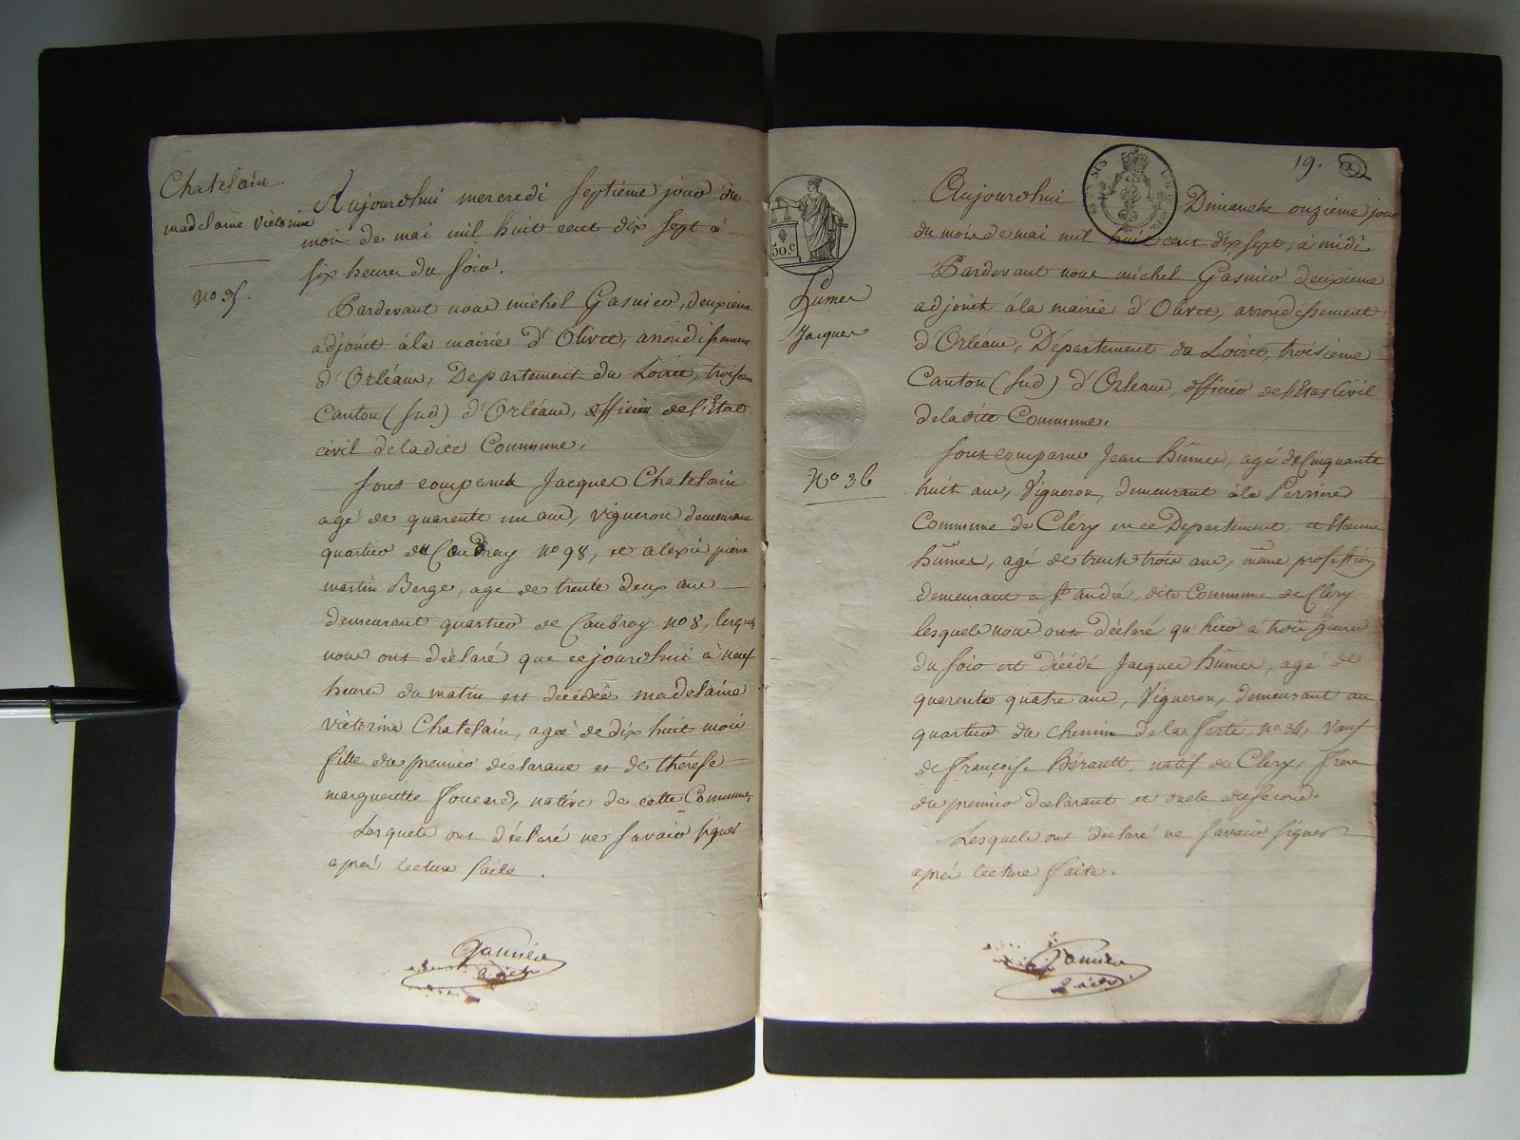 Chatelain
madelaine victorine
no 35.
Aujourdhui mercredi septieme jour du
mois de mai mil huit cent dix sept à
six heures du soir.
Pardevant nous michel Gasnier, deuxieme
adjoint à la mairie d'Olivet, arrondissement
d'Orléans, Departement du Loiret, troisieme
Canton (sud) d'Orléans, officier de l'Etat
civil de ladite Commune.
sont comparus Jacques Chatelain
agé de quarente un ans, vigneron demeurant
quartier du Caubray no 98, et alexis pierre
martin Berge, agé de trente deux ans
demeurant quartier de Caubray no 8, lesquels
nous ont déclaré que cejourdhui à neuf
heures du matin est décédée madelaine
victorine Chatelain, agée de dix huit mois
fille du premier declarant et de thérése
margueritte fouard, native de cette Commune,
Lesquels ont déclaré ne savoir signer
aprés lecture faite.
Gasnier
adjt
19.
50 c
Humer
Jacques
No 36
Aujourdhui Dimanche onzième jour
du mois de mai mil huit cent dix sept, à midi
Pardevant nous michel Gasnier deuxieme
adjoint à la mairie d'Olivet, arrondissement
d'Orléans, Département du Loiret, troisieme
Canton (sud) d'Orleans, officier de l'Etat Civil
de ladite Commune.
sont comparus Jean humer, agé de Cinquante
huit ans, Vigneron, demeurant à la Perriere
Commune de Cléry en ce Departement, et Etienne
humer, agé de trente trois ans, même profession
demeurant a St andré, dite Commune de Clery
lesquels nous ont déclaré qu'hier à trois heures
du soir est décédé Jacques humer, agé de
quarente quatre ans, Vigneron, demeurant au
quartier du chemin de la ferté no 36, veuf
de françoise hérault, natif de Clery, frere
du premier declarant et oncle du second.
Lesquels ont déclaré ne savoir signer
aprés lecture faite.
Gasnier
adjt